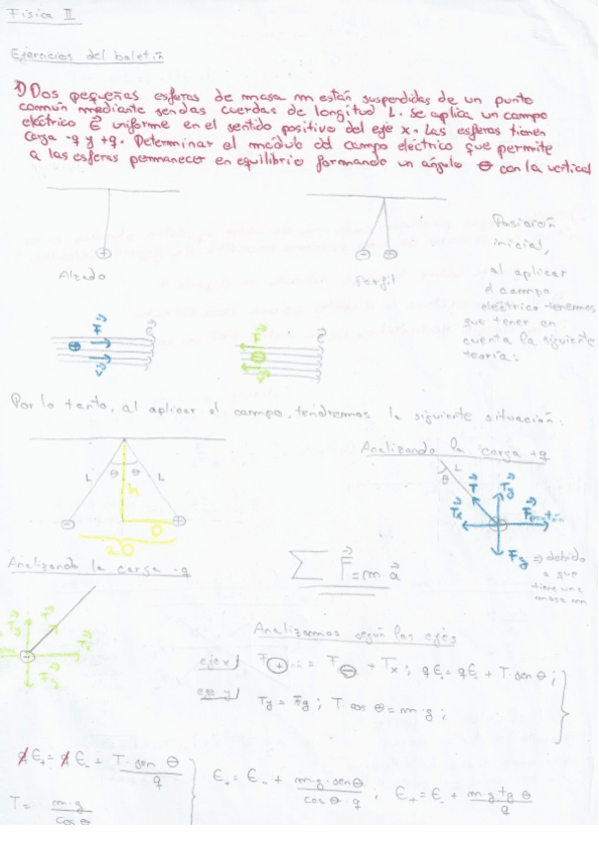 Física II
Ejercicios del boletín
1) Dos pequeñas esferas de masa m están suspendidas de un punto
común mediante sendas cuerdas de longitud L. Se aplica un campo
eléctrico E⃗ uniforme en el sentido positivo del eje x. Las esferas tienen
carga -q y +q. Determinar el módulo del campo eléctrico que permite
a las esferas permanecer en equilibrio formando un ángulo θ con la vertical
Alzado
Perfil
Posición
inicial,
al aplicar
el campo
eléctrico tenemos
que tener en
cuenta la siguiente
teoría:
Por lo tanto, al aplicar el campo, tendremos la siguiente situación:
L θ θ L
h
D
2D
Analizando la carga +q
L
θ
T⃗ T⃗y
T⃗x
F⃗g ⇒ debido
a que
tiene una
masa m
Analizando la carga -q
∑ F⃗ = m·a⃗
Analizamos según los ejes
eje x) F⊕ = F⊖ + Tx ; qE₊ = qE₋ + T·sen θ ;
eje y) Ty = Fg ; T cos θ = m·g ;
qE₊ = qE₋ + T·sen θ / q
T = m·g / cos θ
E₊ = E₋ + m·g·sen θ / cos θ · q ; E₊ = E₋ + m·g tg θ / q